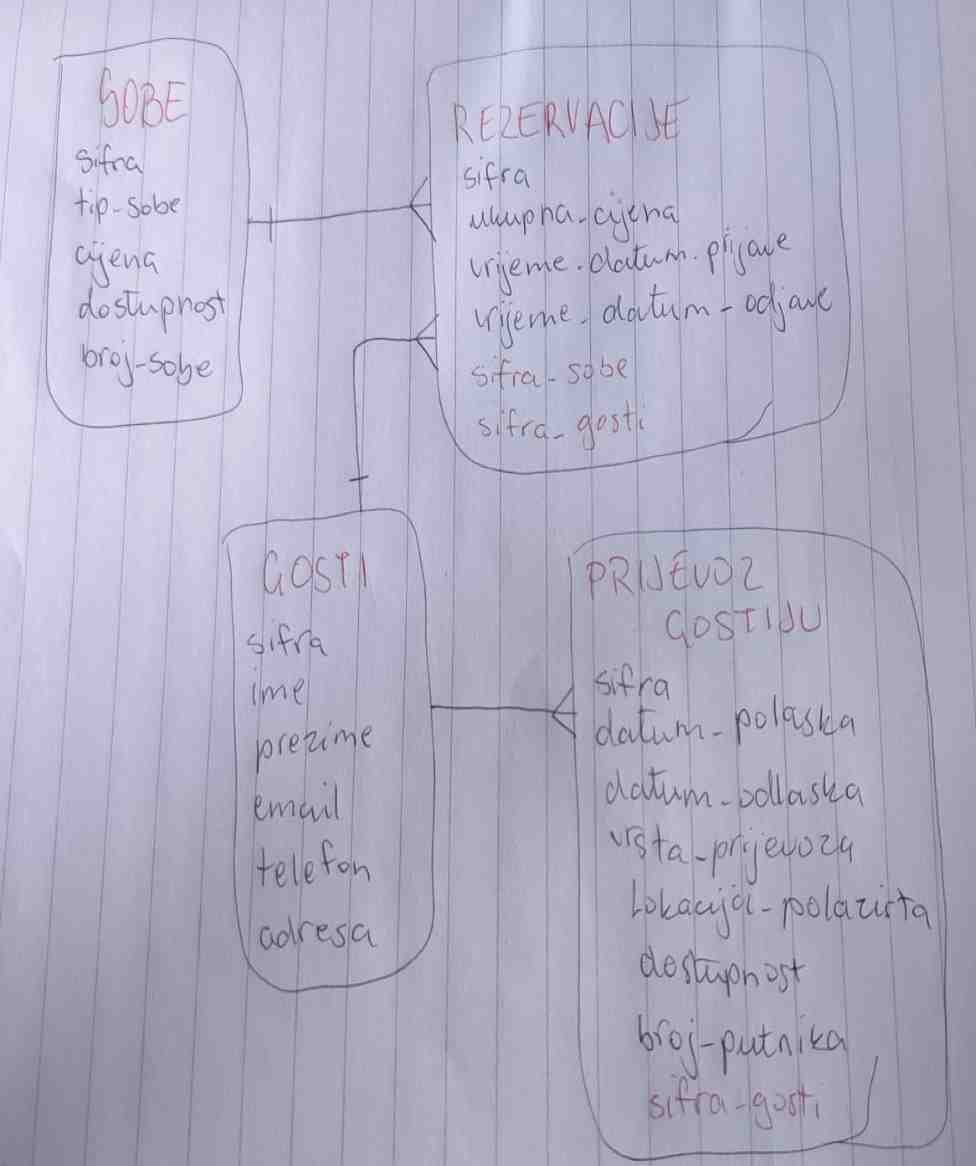 SOBE
sifra
tip-sobe
cijena
dostupnost
broj-sobe
REZERVACIJE
sifra
ukupna-cijena
vrijeme-datum-prijave
vrijeme-datum-odjave
sifra-sobe
sifra-gosti
GOSTI
sifra
ime
prezime
email
telefon
adresa
PRIJEVOZ
GOSTIJU
sifra
datum-polaska
datum-odlaska
vrsta-prijevoza
Lokacija-polazista
dostupnost
broj-putnika
sifra-gosti